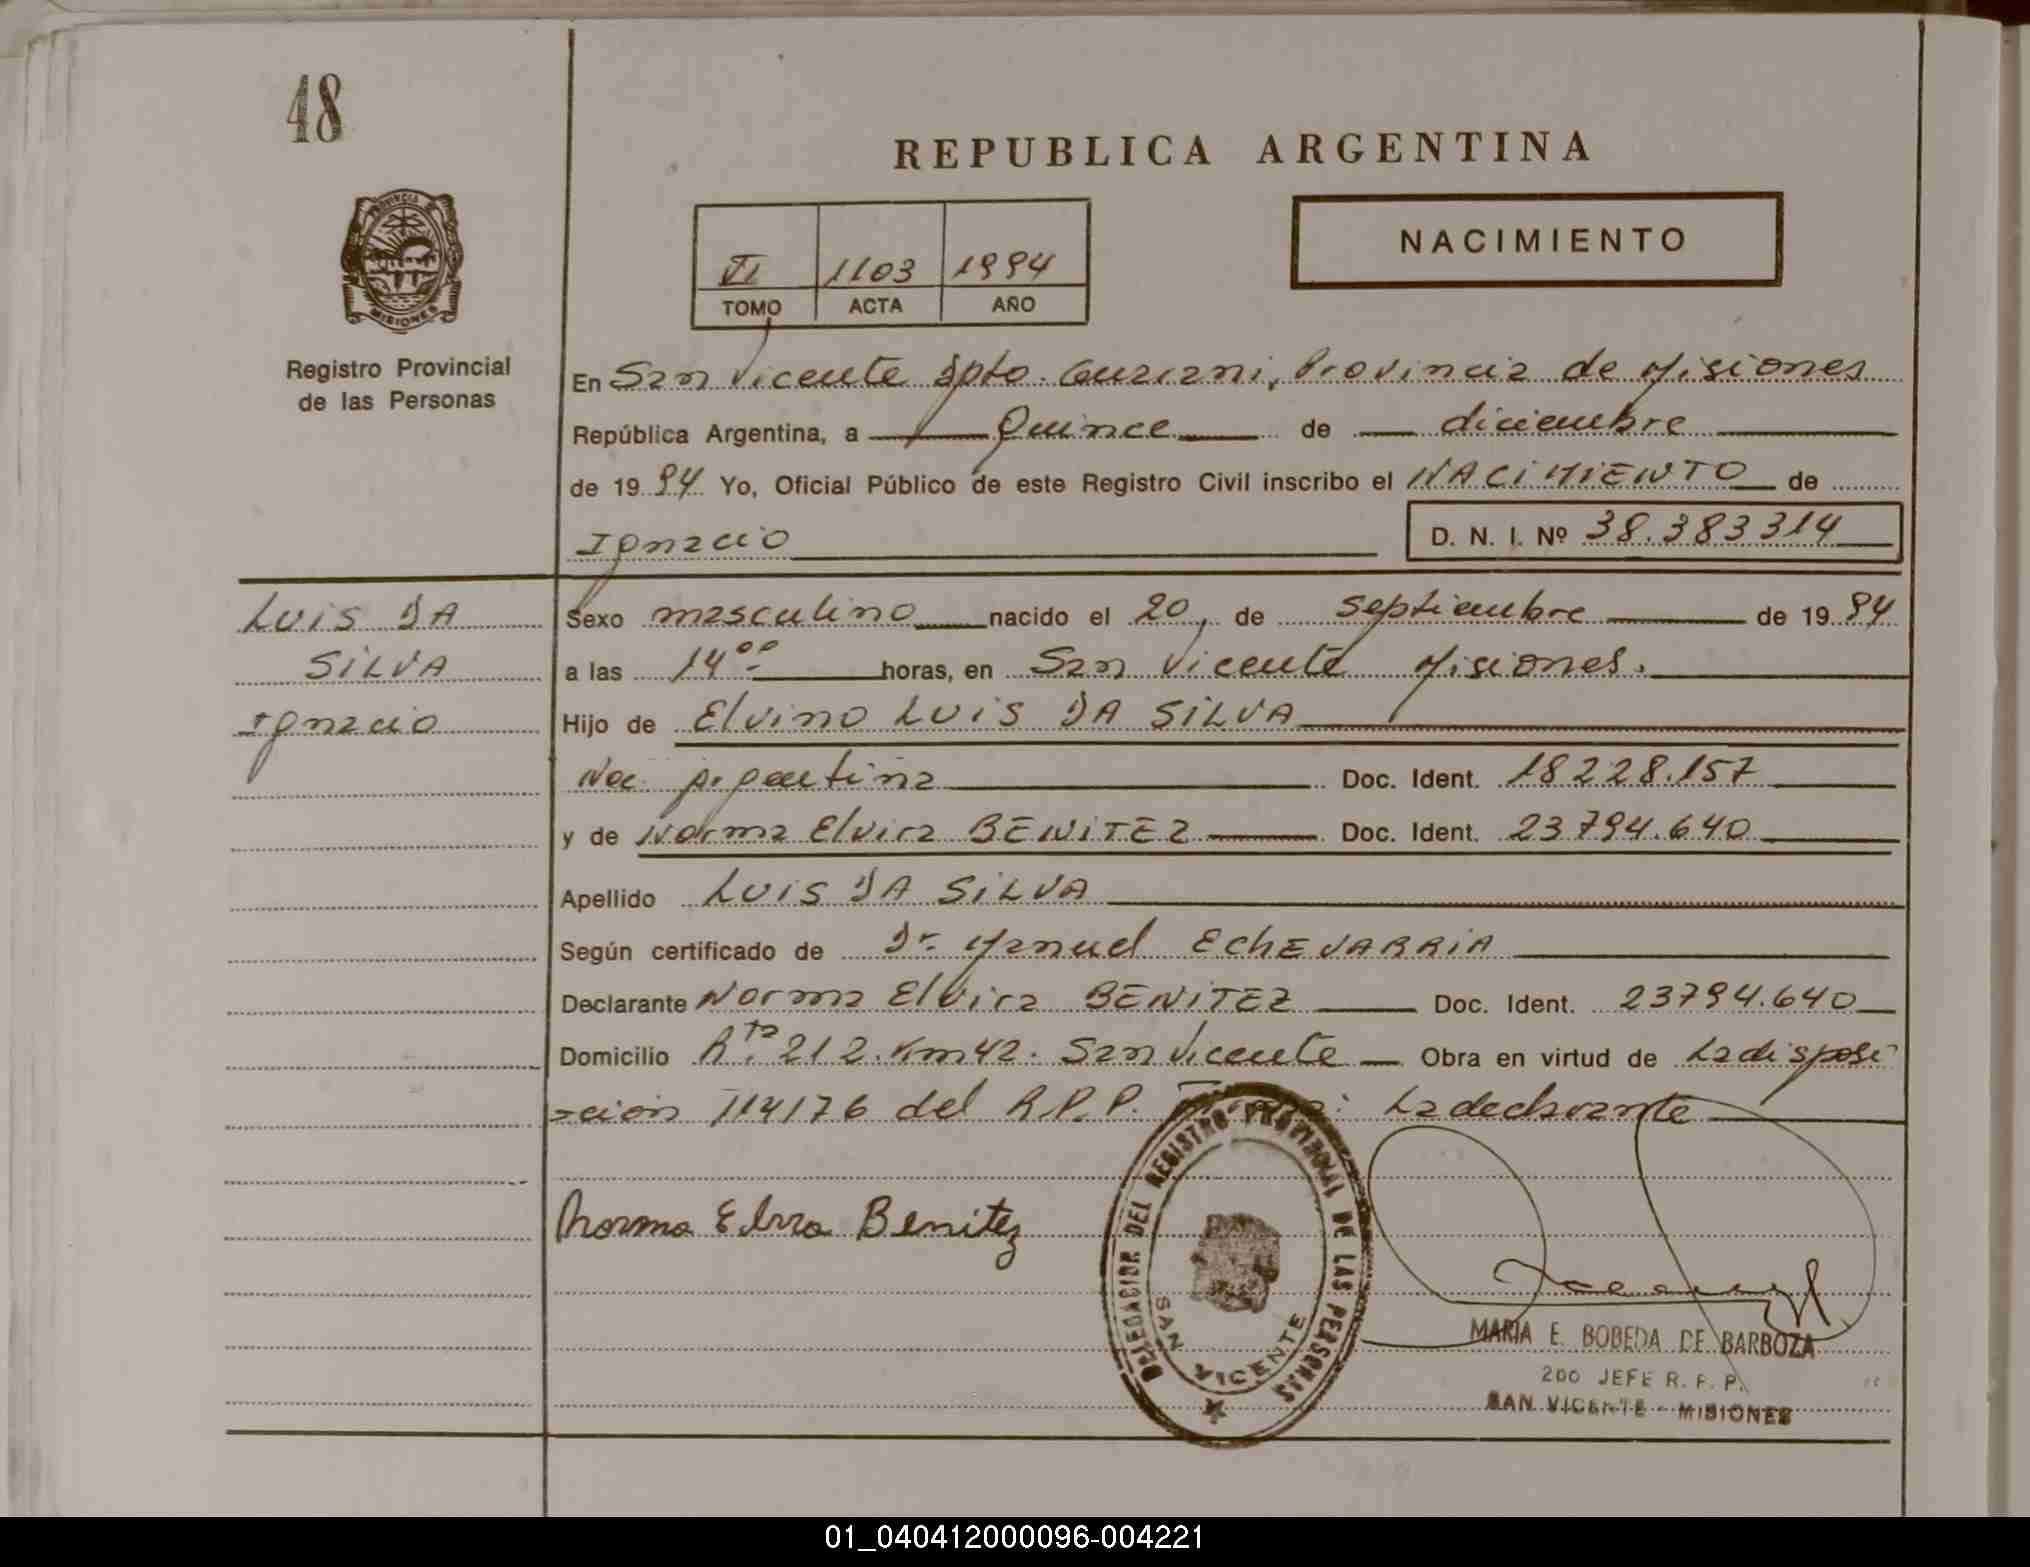 48
REPUBLICA ARGENTINA
PROVINCIA DE
MISIONES
VI 1103 1994
TOMO ACTA AÑO
NACIMIENTO
Registro Provincial
de las Personas
En San Vicente Dpto. Guarani, Provincia de Misiones
República Argentina, a Quince de diciembre
de 1994 Yo, Oficial Público de este Registro Civil inscribo el NACIMIENTO de
Ignacio D. N. I. Nº 38.383314
LUIS DA
SILVA
Ignacio
Sexo masculino nacido el 20, de septiembre de 1994
a las 14⁰⁰ horas, en San Vicente Misiones.
Hijo de Elvino LUIS DA SILVA
Nac. Argentina Doc. Ident. 18228.157
y de Norma Elvira BENITEZ Doc. Ident. 23794.640
Apellido LUIS DA SILVA
Según certificado de Dr. Manuel ECHEVARRIA
Declarante Norma Elvira BENITEZ Doc. Ident. 23794.640
Domicilio Rta. 212. Km 42. San Vicente Obra en virtud de La disposi
ción 114176 del R.P.P. La declarante
Norma Elvira Benitez
DELEGACION DEL REGISTRO PROVINCIAL DE LAS PERSONAS
SAN VICENTE
MARIA E. BOBEDA DE BARBOZA
2do JEFE R. P. P.
SAN VICENTE - MISIONES
01_040412000096-004221